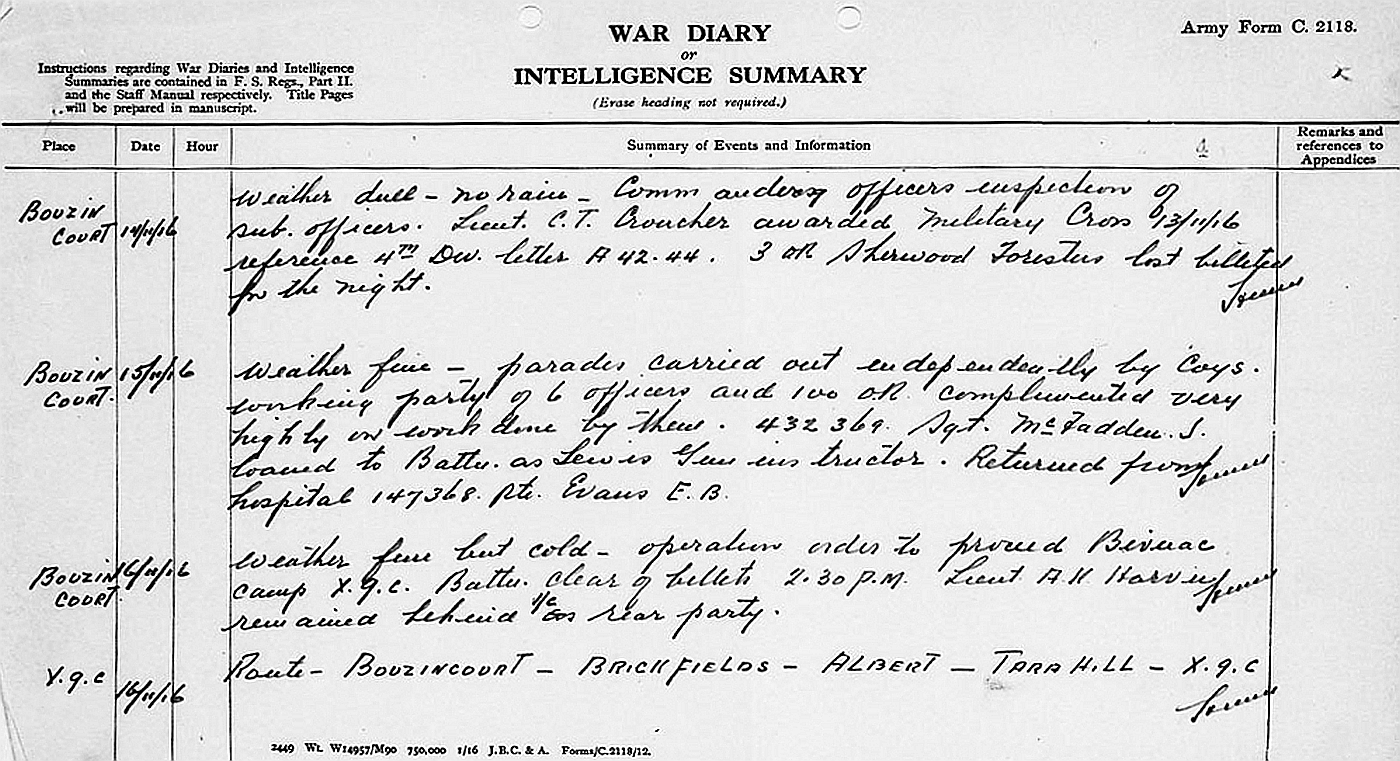 WAR DIARY
or
INTELLIGENCE SUMMARY
(Erase heading not required.)
Army Form C. 2118.
Instructions regarding War Diaries and Intelligence
Summaries are contained in F. S. Regs., Part II.
and the Staff Manual respectively. Title Pages
will be prepared in manuscript.
Place Date Hour Summary of Events and Information Remarks and references to Appendices
BOUZIN COURT 14/11/16
Weather dull - no rain - Commanding officers inspection of
sub. officers. Lieut. C.T. Croucher awarded Military Cross 13/11/16
reference 4TH Div. letter A 42.44. 3 OR Sherwood Foresters lost billeted
for the night.
BOUZIN COURT. 15/11/16
Weather fine - parades carried out independently by Coys.
working party of 6 officers and 100 OR complimented very
highly on work done by them. 432369. Sgt. McFadden. J.
loaned to Battn. as Lewis Gun instructor. Returned from
hospital 147368. Pte. Evans E.B.
BOUZIN COURT. 16/11/16
Weather fine but cold - operation order to proceed Bivuac
camp X.9.c. Battn. clear of billets 2.30 P.M. Lieut. A.K.
remained behind i/c rear party.
X.9.c 16/11/16
Route - BOUZINCOURT - BRICKFIELDS - ALBERT - TARA HILL - X.9.C
2449 Wt. W14957/M90 750,000 1/16 J.B.C. & A. Forms/C.2118/12.